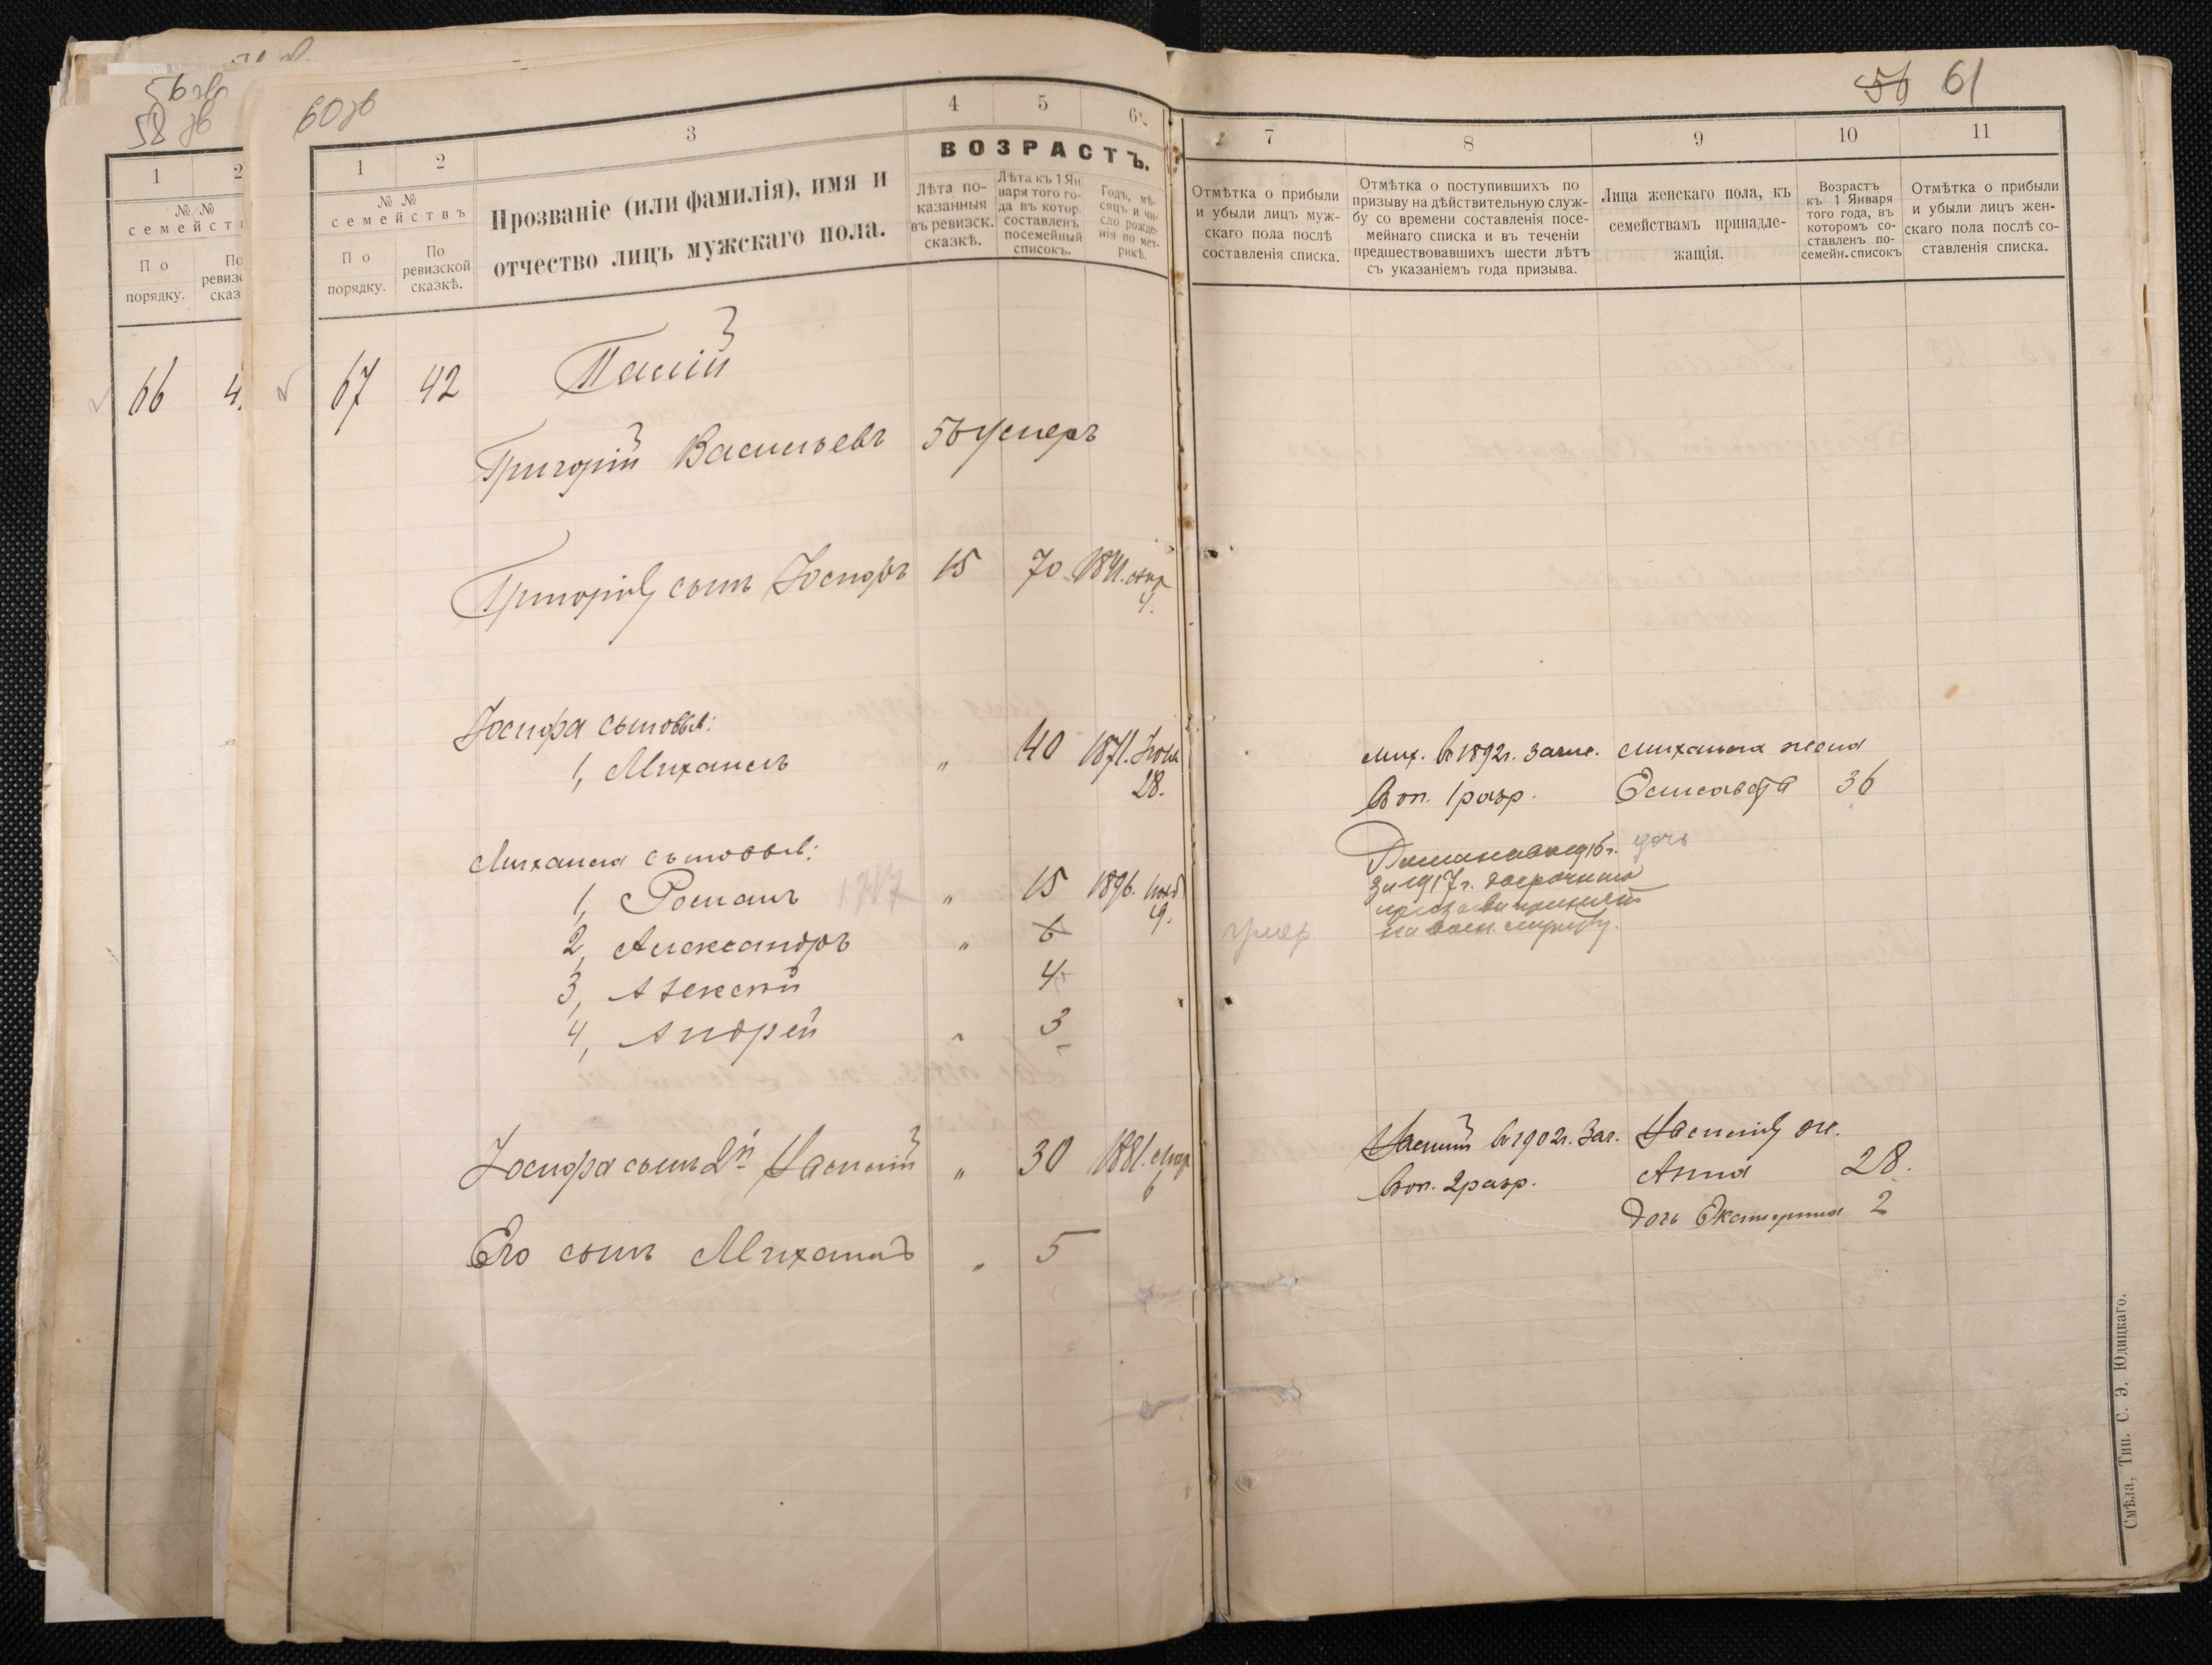 56 зв
58 зв
1
2
№ №
По
порядку.
66
60 зв
1
2
3
4
5
6
№ №
семействъ
По
порядку.
По
ревизской
сказкѣ.
Прозваніе (или фамилія), имя и
отчество лицъ мужскаго пола.
ВОЗРАСТЪ.
Лѣта по-
казанныя
въ ревизск.
сказкѣ.
Лѣта къ 1 Ян
варя того го-
да въ котор.
составленъ
посемейный
списокъ.
Годъ, мѣ-
сяцъ и чи-
сло рожде-
нія по мет-
рикѣ.
67 42
Григорій Васильевъ 56 умеръ
Григорія сынъ Іосифъ 15 70 1841.
4.
Іосифа сыновья:
1, Михаилъ " 40 1871. Ноя
28.
Михаила сыновья:
1, Романъ 1917 " 15 1896. Нояб
9.
2, Александръ " 6
3, Алексѣй 4
4, Андрей " 3
Іосифа сынъ 2й " 30 1881. Мар
6
Его сынъ Михаилъ " 5
56 61
7
8
9
10
11
Отмѣтка о прибыли
и убыли лицъ муж-
скаго пола послѣ
составленія списка.
Отмѣтка о поступившихъ по
призыву на дѣйствительную служ-
бу со времени составленія посе-
мейнаго списка и въ теченіи
предшествовавшихъ шести лѣтъ
съ указаніемъ года призыва.
Лица женскаго пола, къ
семействамъ принадле-
жащія.
Возрастъ
къ 1 Января
того года, въ
которомъ со-
ставленъ по-
семейн. списокъ
Отмѣтка о прибыли
и убыли лицъ жен-
скаго пола послѣ со-
ставленія списка.
Мих. въ 1892г. зачис. Михаила жена
въ оп. 1 разр. Елисавета 36
дочь
за 1917 г. досрочно
умер.
въ 1902г. зач.
въ оп. 2 разр. Анна 28.
дочь Екатерина 2
Смѣла, Тип. С. Э. Юдицкаго.